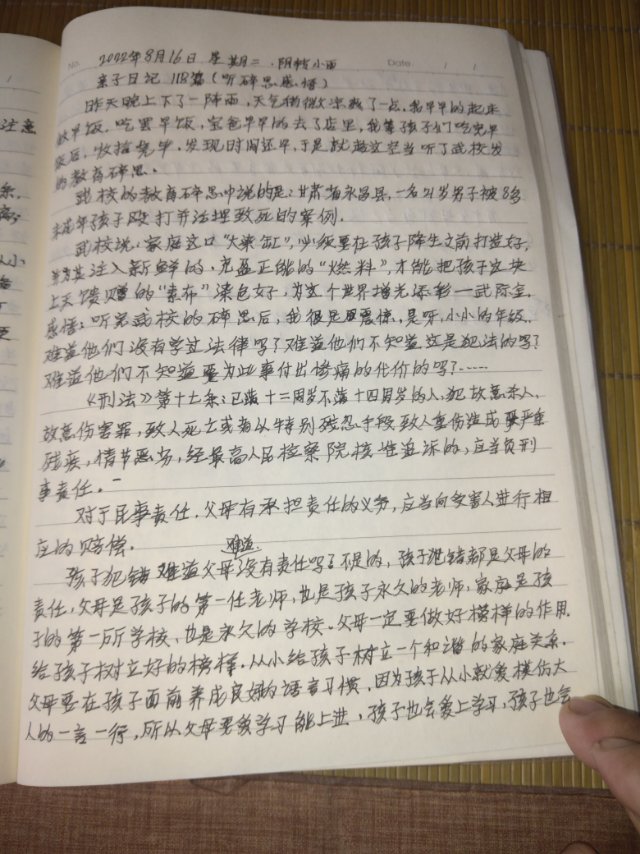 No.
Date / /
2022年8月16日 星期二 .阴转小雨
亲子日记 118篇(听碎思感悟)
昨天晚上下了一阵雨,天气稍微凉爽了一点,我早早的起来
做早饭.吃罢早饭,宝爸早早的去了店里,我等孩子们吃完早
饭后,收拾完毕.发现时间还早,于是就趁这空当听了武校发
的教育碎思.
武校的教育碎思中说的是:甘肃省永昌县,一名21岁男子被8名
未成年孩子殴打并活埋致死的案例.
武校说:家庭这口"大染缸",必须要在孩子降生之前打造好,
并为其注入新鲜的,充盈正能的"燃料",才能把孩子这块
上天馈赠的"素布"染色好,为这个世界增光添彩一武际金.
感悟:听完武校的碎思后,我很是震惊,是呀,小小的年纪.
难道他们没有学过法律吗?难道他们不知道这是犯法的吗?
难道他们不知道要为此事付出惨痛的代价的吗?.....
《刑法》第十七条:已满十二周岁不满十四周岁的人,犯故意杀人,
故意伤害罪,致人死亡或者以特别残忍手段致人重伤造成严重
残疾,情节恶劣,经最高人民检察院核准追诉的,应当负刑
事责任.一
对于民事责任.父母有承担责任的义务,应当向受害人进行相
应的赔偿.
难道
孩子犯错难道父母没有责任吗?不是的,孩子犯错都是父母的
责任,父母是孩子的第一任老师,也是孩子永久的老师,家庭是孩
子的第一所学校,也是永久的学校.父母一定要做好榜样的作用
给孩子树立好的榜样.从小给孩子树立一个和谐的家庭关系.
父母要在孩子面前养成良好的语言习惯.因为孩子从小就爱模仿大
人的一言一行,所以父母要爱学习能上进,孩子也会爱上学习,孩子也会
注意